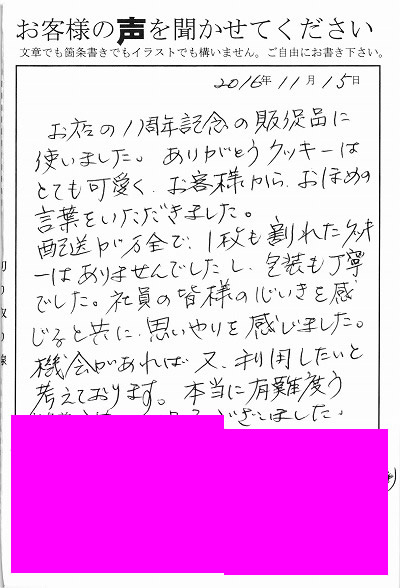 お客様の声を聞かせてください
文章でも箇条書きでもイラストでも構いません。ご自由にお書き下さい。
2016年11月15日
お店の11周年記念の販促品に
使いました。ありがとうクッキーは
とても可愛く、お客様から、おほめの
言葉をいただきました。
配送が万全で、1枚も割れたクッキ
ーはありませんでしたし、包装も丁寧
でした。社員の皆様の心いきを感
じると共に、思いやりを感じました。
機会があれば又、利用したいと
考えております。本当に有難度う
ございました。
切り取り線